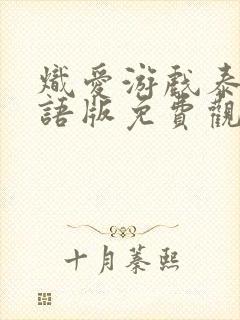 熾愛游戲泰
語版免費觀
十月蓁熙